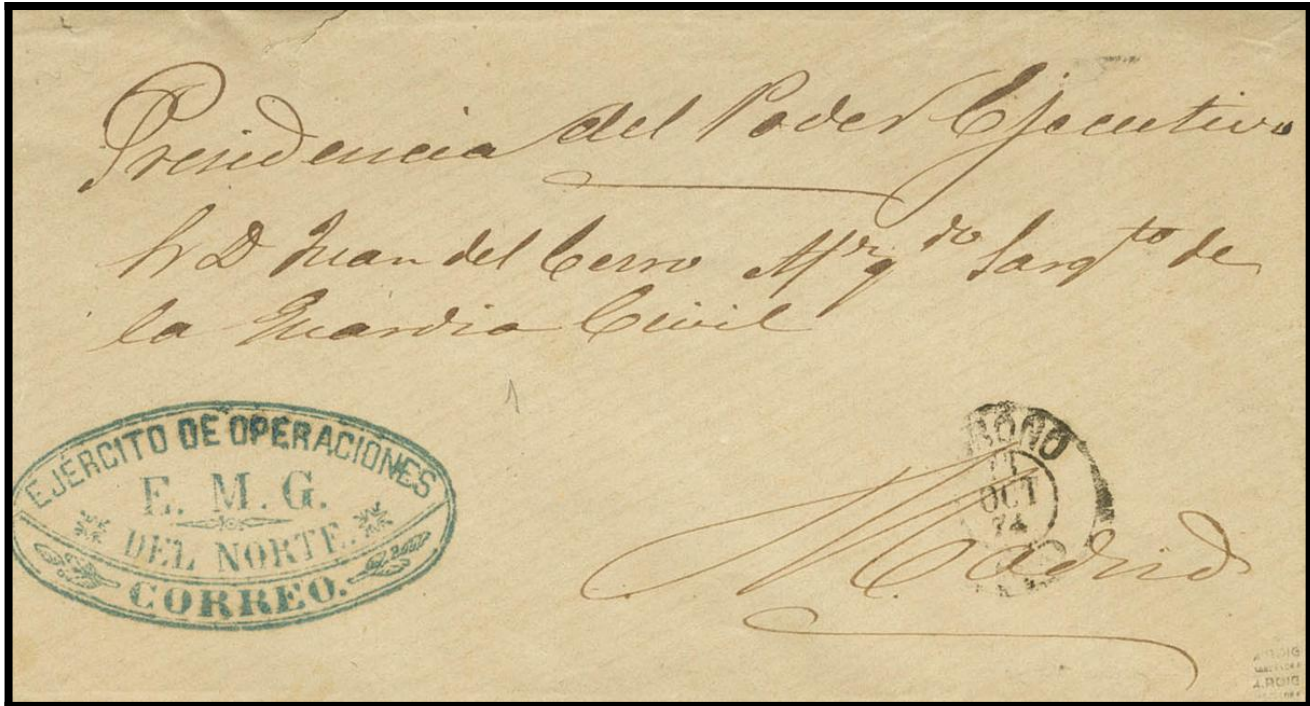 Presidencia del Poder Ejecutivo
Sr D Juan del Cerro Sargto de
la Guardia Civil
EJÉRCITO DE OPERACIONES
E. M. G.
DEL NORTE.
CORREO.
OCT
74
Madrid
A.ROIG